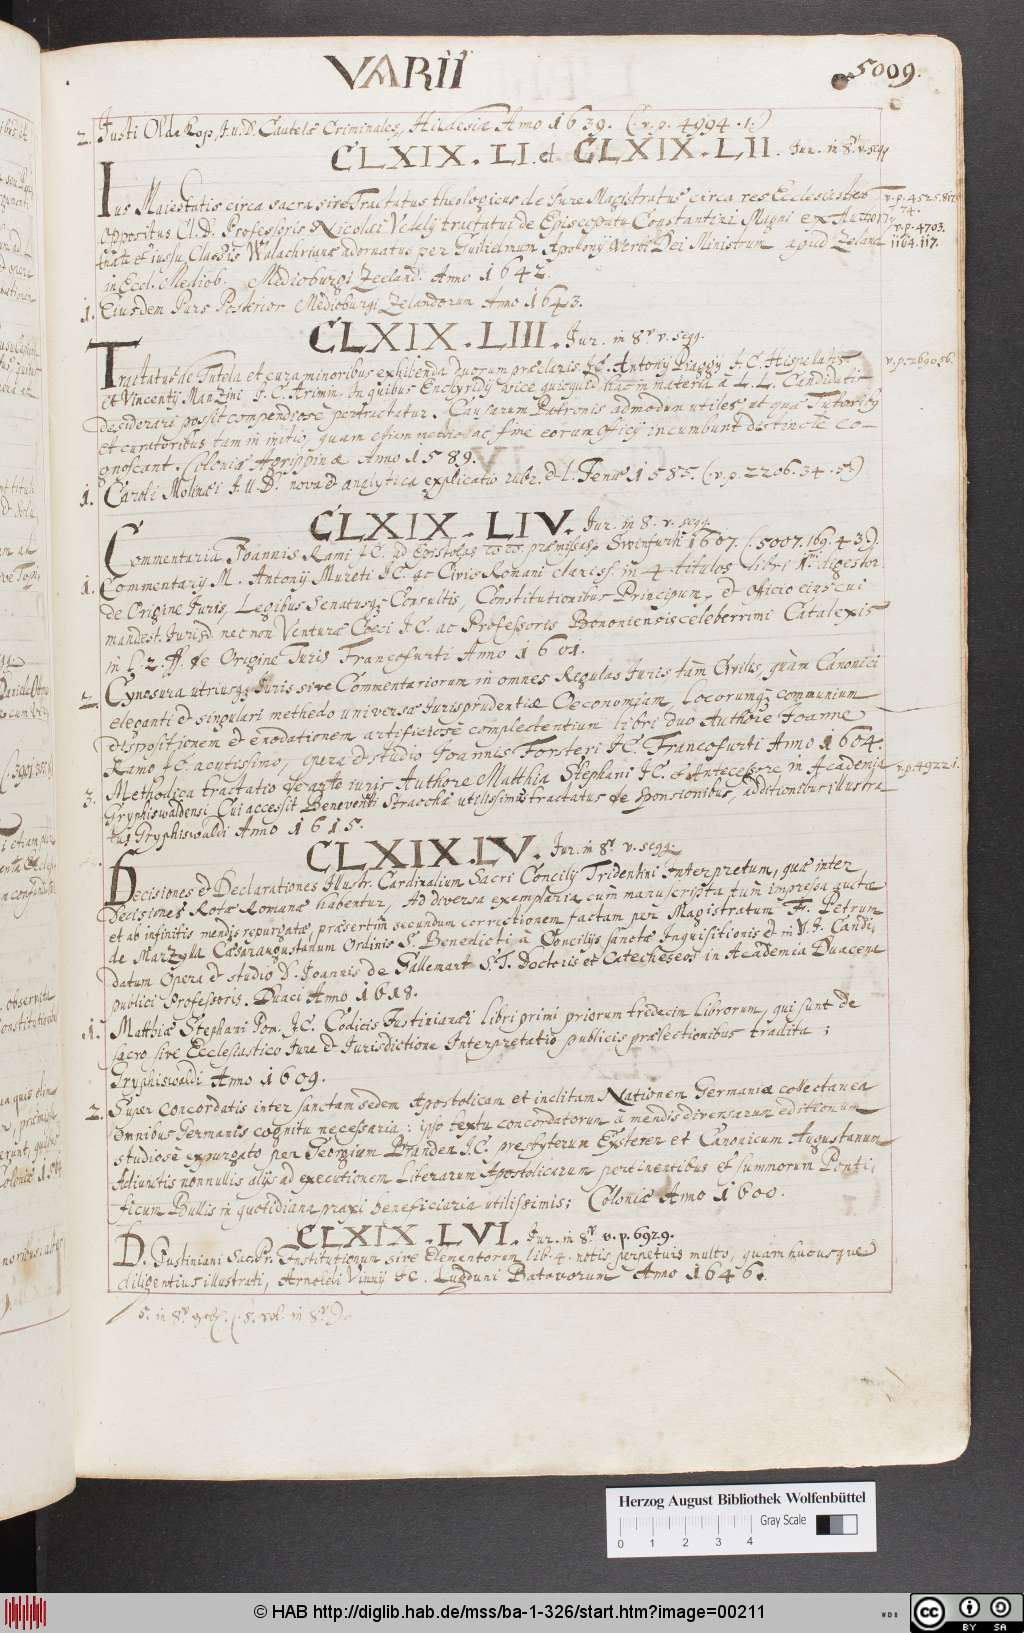 VARII
5009.
2. Justi Oldekop, J.u.D. Cautelæ Criminales, Hildesiæ Anno 1639. (v.p. 4994.1.)
CLXIX.LI. et CLXIX.LII. Jur. in 8º. v. seqq.
Ius Maiestatis circa sacra sive Tractatus theologicus de Jure Magistratus circa res Ecclesiasticas
v.p. 4525.
74.
oppositus Cl. D. Professoris Nicolai Vedely tractatui de Episcopatu Constantini Magni ex Autori-
v.p. 4703.
tate et iussu Classis Walachrianæ adornatus per Guilielmum Apollony Verbi Dei Ministrum apud Zeland
1164.117.
in Eccl. Mediob. Medioburgi Zeeland. Anno 1642.
1. Eiusdem Pars Posterior Medioburgi Zelandorum Anno 1643.
CLXIX.LIII. Jur. in 8º v. seqq.
Tractatus de Tutela et cura minoribus exhibenda duorum præclaris. JC. Antony Piaggy J.C. Hispelatis
v.p. 2690.56.
et Vincenty Manzini J.C. Arimin. In quibus Enchyridy vice quicquid hac in materia à L.L. Candidatis
desiderari possit compendiose pertractatur. Causarum Patronis admodum utiles ut quæ Tutoribus
et curatoribus tam in initio, quam etiam medio ac fine eorum officy incumbunt distincte co-
gnoscant. Coloniæ Agrippinæ Anno 1589.
1. Caroli Molinæi J.U.D. nova et analytica explicatio rubr. et l. Jenuæ 1585. (v.p. 2206.34.5.)
CLXIX.LIV. Jur. in 8. v. seqq.
Commentaria Joannis Rami JC. ad Epistolas præmissas. Svvinfurti 1607. (.5007.169.43.)
1. Commentary M. Antonij Mureti JC. ac Civis Romani clariss. in 4 titulos libri 1mi digestor.
de Origine Juris, Legibus Senatusq; Consultis, Constitutionibus Principum, et officio eius cui
mandest. Jurisd. nec non Venturæ Cæci J.C. ac Professoris Bononiensis celeberrimi Catalexis
in L. 2. ff. de Origine Juris Francofurti Anno 1601.
2. Cynosura utriusq; Juris sive Commentariorum in omnes Regulas Juris tàm Civilis, quàm Canonici
eleganti et singulari methodo universæ Jurisprudentiæ Oeconomiam, locorumq; communium
dispositionem et enodationem artificiose complectentium libri duo Authore Joanne
Ramo JC. acutissimo, opera et studio Joannis Forsteri J.C. Francofurti Anno 1604.
3. Methodica tractatio de arte iuris Authore Matthia Stephani JC. et Antecessore in Academia
v.p. 4922.1.
Gryphiswaldensi. Cui accessit Beneventi Stracchæ utilissimus tractatus de sponsionibus, additionibus illustra
tus Gryphiswaldi Anno 1615.
CLXIX.LV. Jur. in 8º. v. seqq.
Decisiones et Declarationes Illustr. Cardinalium Sacri Concily Tridentini Interpretum, quæ inter
Decisiones Rotæ Romanæ habentur, Ad diversa exemplaria cùm manuscripta tùm impressa auctæ
et ab infinitis mendis repurgatæ, præsertim secundum correctionem factam per Magistratum Fr. Petrum
de Marzylla Cæsaraugustanum Ordinis S. Benedicti à Concilijs sanctæ Inquisitionis et in V.J. Candi-
datum Opera et studio D. Joannis de Gallemart S.T. Doctoris et Catecheseos in Academia Duacena
publici Professoris. Duaci Anno 1618.
1. Matthiæ Stephani Pom. J.C. Codicis Justinianæi libri primi priorum tredecim librorum, qui sunt de
sacro sive Ecclesiastico Jure et Jurisdictione Interpretatio publicis prælectionibus tradita;
Gryphiswaldi Anno 1609.
2. Super concordatis inter sanctam sedem Apostolicam et inclitam Nationem Germaniæ collectanea
omnibus Germanis cognitu necessaria: ipso textu concordatorum à mendis diversarum editionum
studiose expurgato per Georgium Branden J.C. presbyterum Exteren et Canonicum Augustanum
Adiunctis nonnullis alijs ad executionem Literarum Apostolicarum pertinentibus et summorum Ponti-
ficum Bullis in quotidiana praxi beneficiaria utilissimis; Coloniæ Anno 1600.
CLXIX.LVI. Jur. in 8º. v.p. 6929.
D. Justiniani Sac. Pr. Institutionum sive Elementorum lib. 4. notis perpetuis multo, quam hucusque
diligentius illustrati, Arnoldi Vinnij JC. Lugduni Batavorum Anno 1646.
Herzog August Bibliothek Wolfenbüttel
Gray Scale
0 1 2 3 4
© HAB http://diglib.hab.de/mss/ba-1-326/start.htm?image=00211
cc BY SA